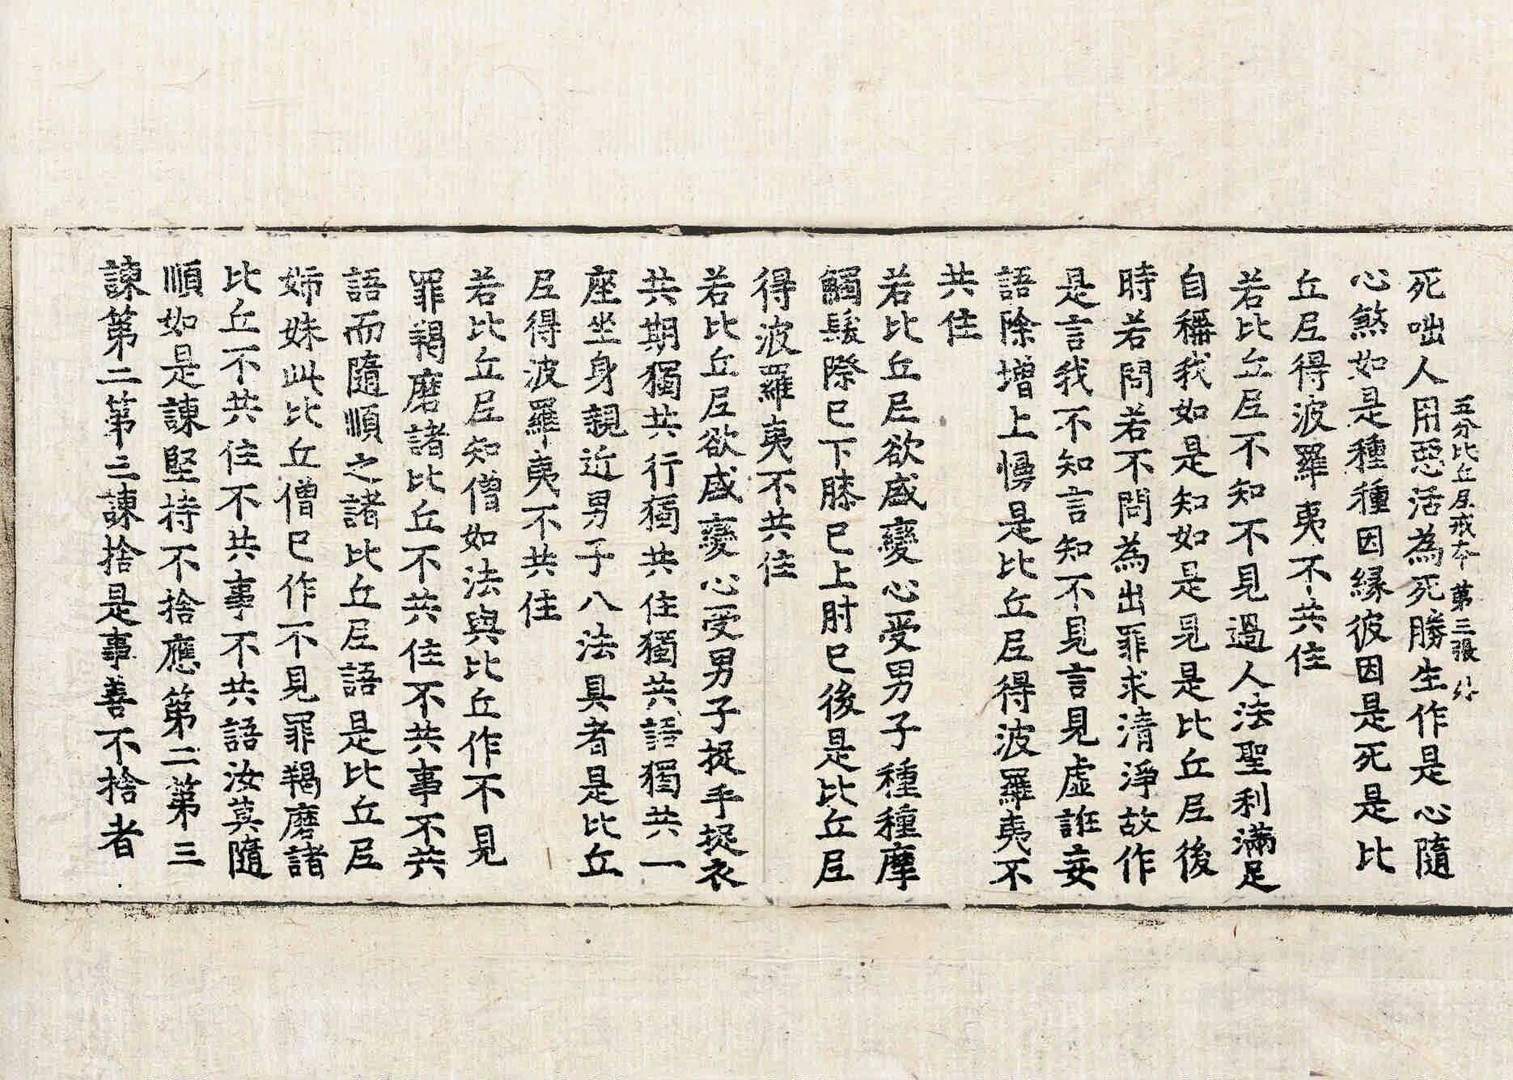 五分比丘尼戒本 第三張
死咄人用惡活為死勝生作是心隨
心煞如是種種因縁彼因是死是比
丘尼得波羅夷不共住
若比丘尼不知不見過人法聖利滿足
自稱我如是知如是見是比丘尼後
時若問若不問為出罪求清淨故作
是言我不知言知不見言見虛誑妄
語除增上慢是比丘尼得波羅夷不
共住
若比丘尼欲盛變心受男子種種摩
觸髮際已下膝已上肘已後是比丘尼
得波羅夷不共住
若比丘尼欲盛變心受男子捉手捉衣
共期獨共行獨共住獨共語獨共一
座坐身親近男子八法具者是比丘
尼得波羅夷不共住
若比丘尼知僧如法與比丘作不見
罪羯磨諸比丘不共住不共事不共
語而隨順之諸比丘尼語是比丘尼
姊妹此比丘僧已作不見罪羯磨諸
比丘不共住不共事不共語汝莫隨
順如是諫堅持不捨應第二第三
諫第二第三諫捨是事善不捨者